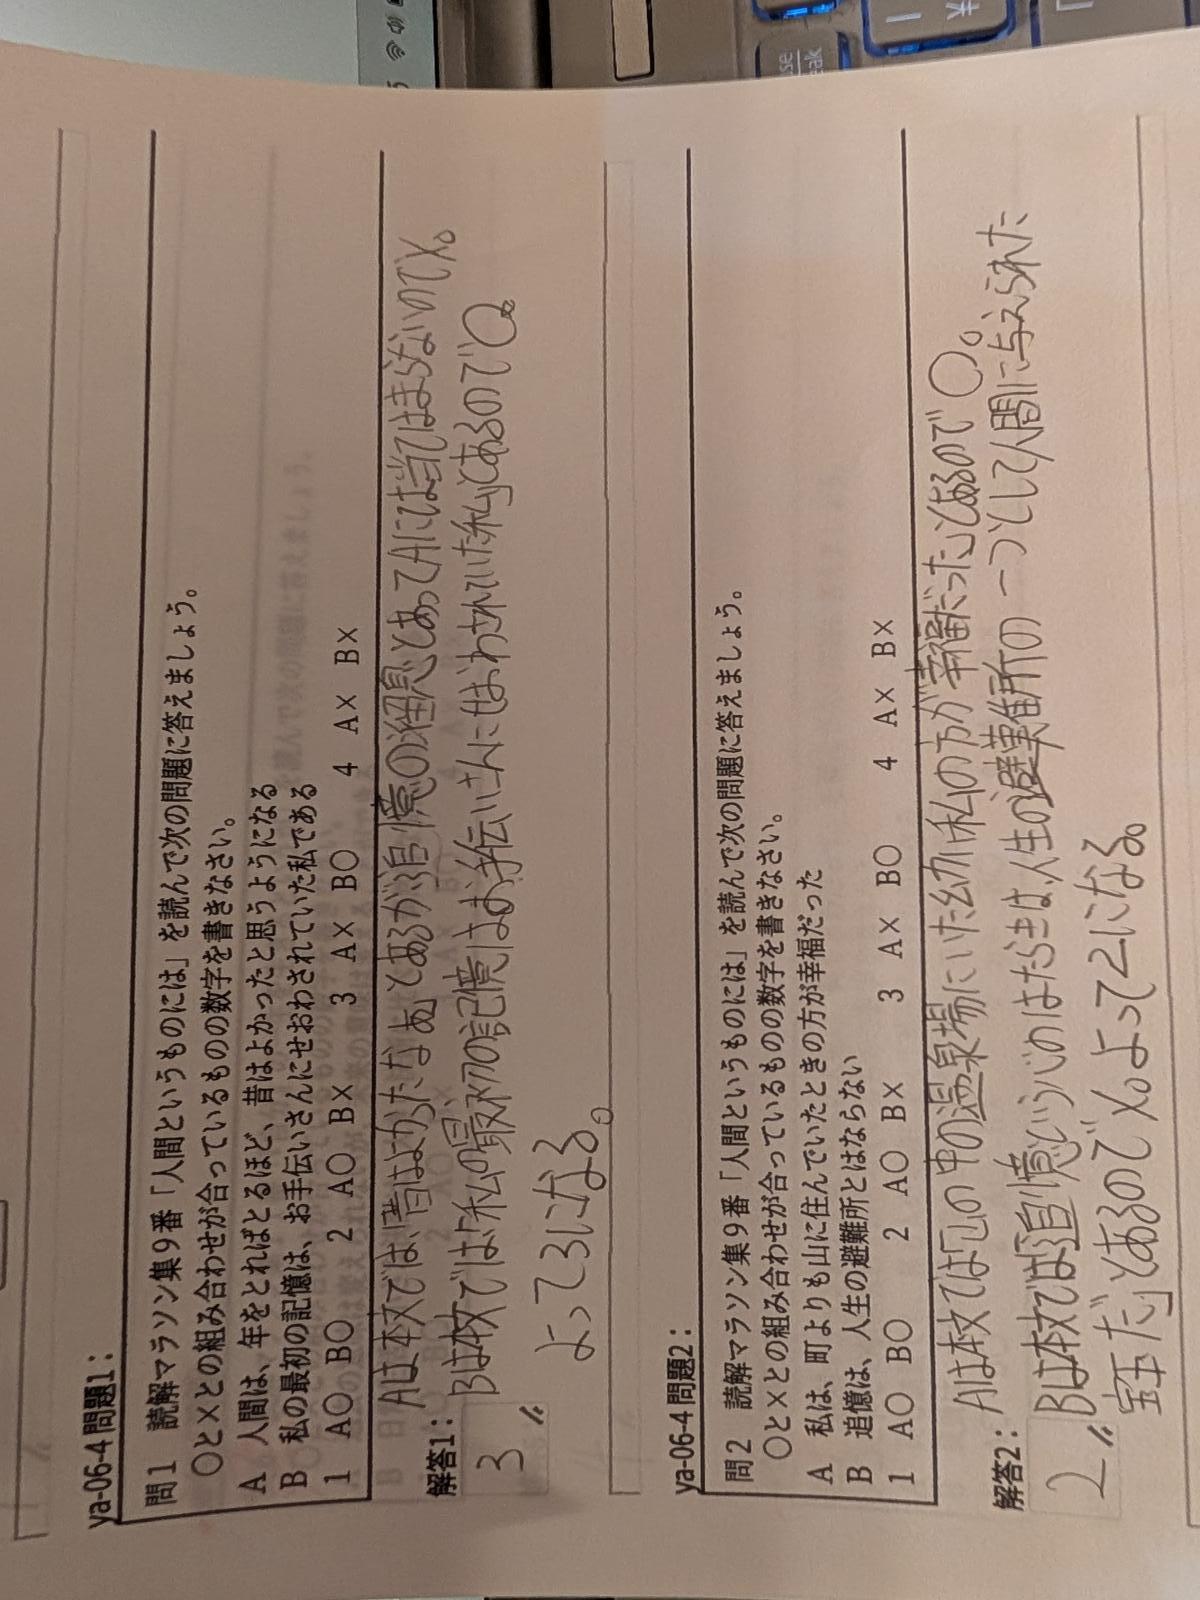 ya-06-4 問題1：
問1　読解マラソン集9番「人間というものには」を読んで次の問題に答えましょう。
〇と×との組み合わせが合っているものの数字を書きなさい。
A　人間は、年をとればとるほど、昔はよかったと思うようになる
B　私の最初の記憶は、お手伝いさんにせおわされていた私である
1　AO　BO　2　AO　B×　3　A×　BO　4　A×　B×
解答1：
3〃
Aは本文では、「昔はよかったなぁ」とあるが追憶の

とあってAには当てはまらないので×。
Bは本文では「私の最初の記憶はお手伝いさんにせおわされていた私」とあるので〇。
よって3になる。
ya-06-4 問題2：
問2　読解マラソン集9番「人間というものには」を読んで次の問題に答えましょう。
〇と×との組み合わせが合っているものの数字を書きなさい。
A　私は、町よりも山に住んでいたときの方が幸福だった
B　追憶は、人生の避難所とはならない
1　AO　BO　2　AO　B×　3　A×　BO　4　A×　B×
解答2：
2〃
Aは本文では「山の中の温泉場にいた幼い私の方が幸福だった」とあるので〇。
Bは本文では「追憶という心のはたらきは、人生の避難所の一つとして人間に与えられた
宝だ」とあるので×。よって2になる。